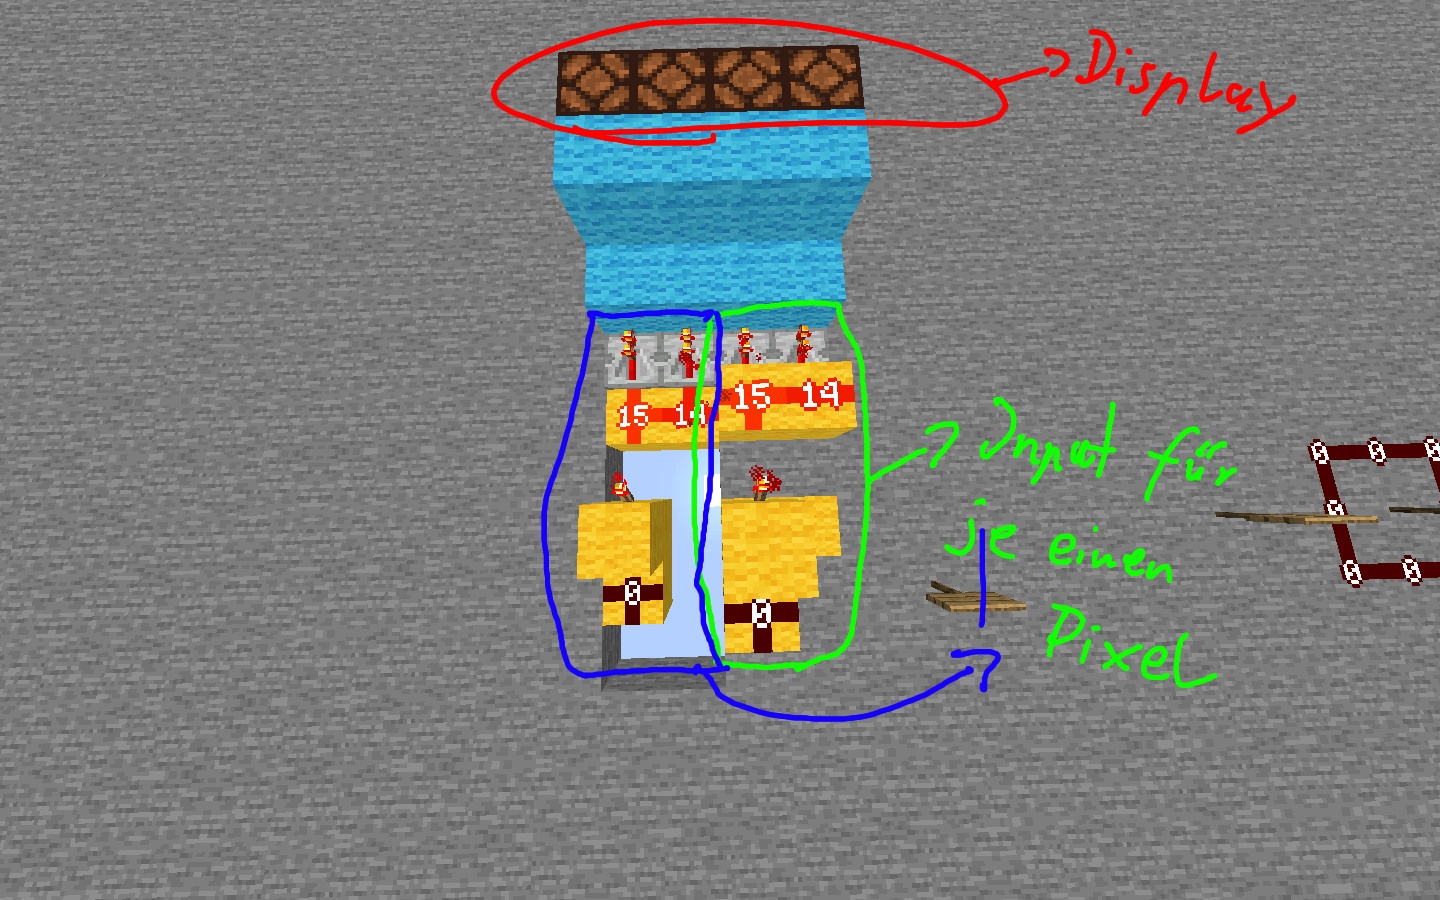 Display
15 14 15 14
Input für
je einen
Pixel
0 0 0
0
0 0
0 0